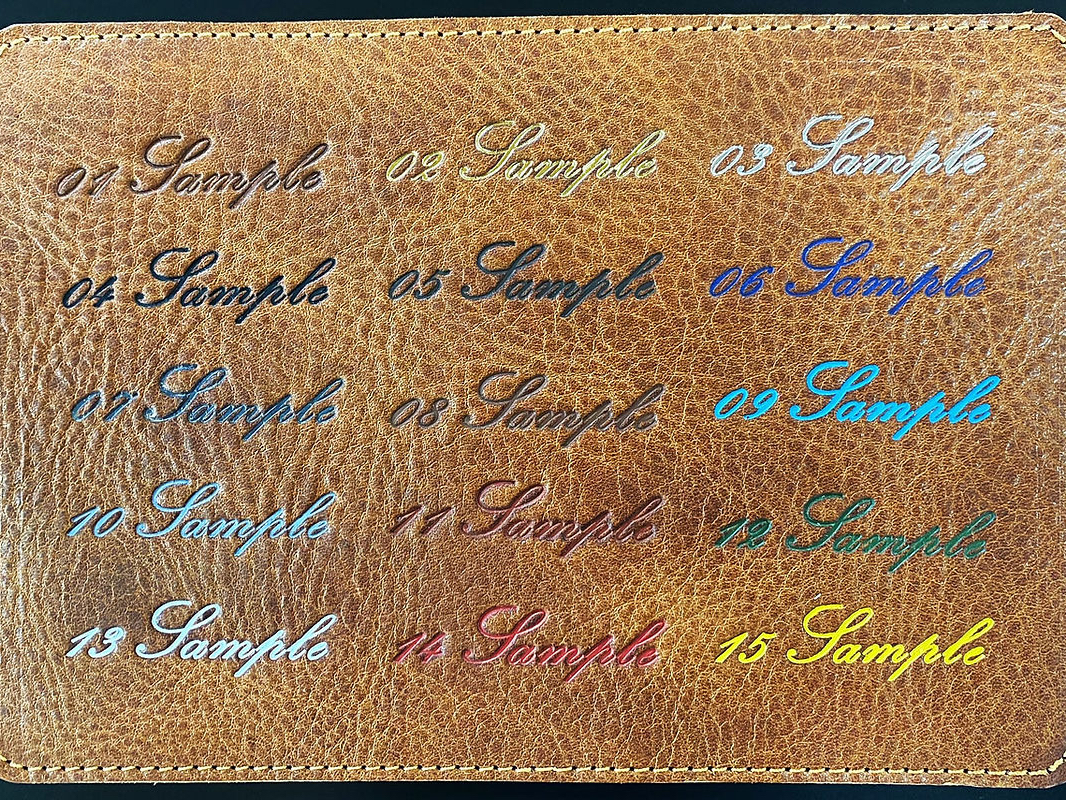 01 Sample 02 Sample 03 Sample
04 Sample 05 Sample 06 Sample
07 Sample 08 Sample 09 Sample
10 Sample 11 Sample 12 Sample
13 Sample 14 Sample 15 Sample